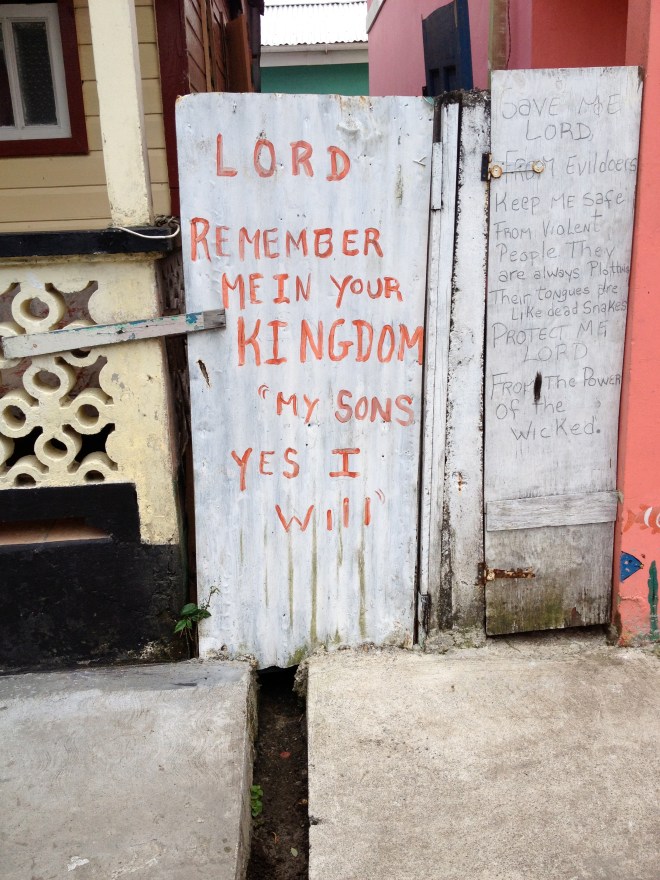 LORD
REMEMBER
ME IN YOUR
KINGDOM
"MY SONS
YES I
Will"
SAVE ME
LORD
FROM Evildoers
Keep ME Safe
From Violent
People They
are always Plotting
Their tongues are
Like dead Snakes
PROTECT ME
LORD
From The Power
of the
wicked.